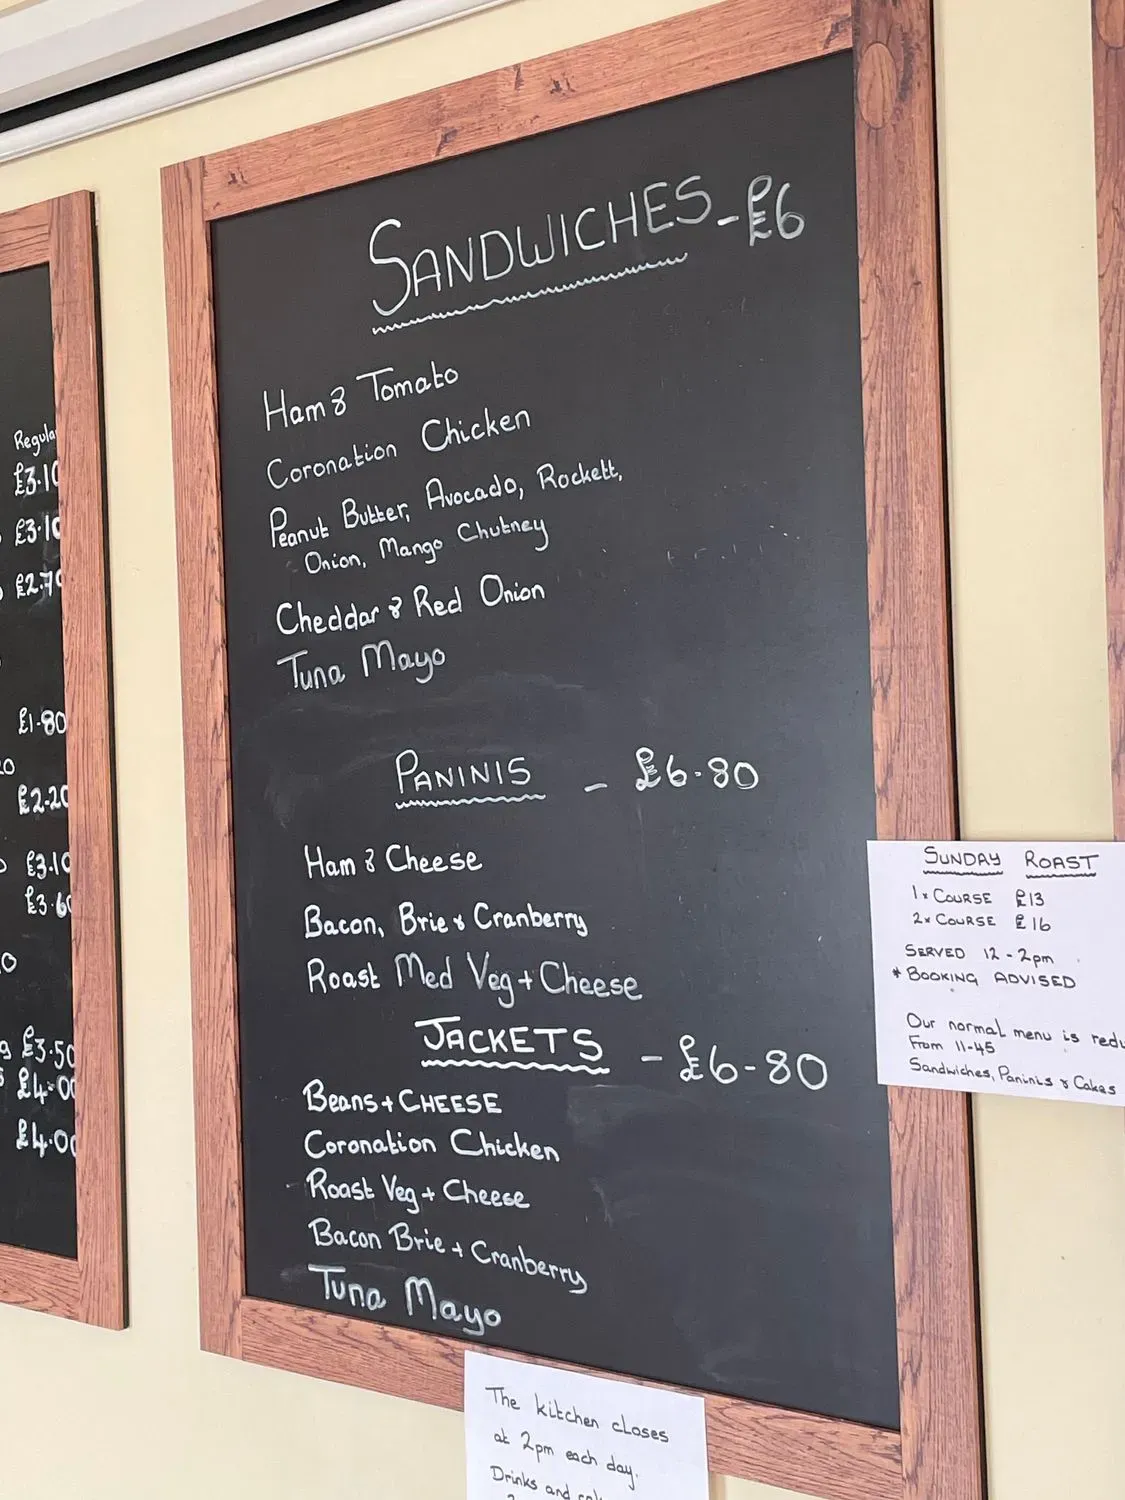 Regular
£3.10
£3.10
£2.70
£1.80
£2.20
£3.10
£3.60
£3.50
£4.00
£4.00
SANDWICHES - £6
Ham & Tomato
Coronation Chicken
Peanut Butter, Avocado, Rockett,
Onion, Mango Chutney
Cheddar & Red Onion
Tuna Mayo
PANINIS - £6.80
Ham & Cheese
Bacon, Brie & Cranberry
Roast Med Veg + Cheese
JACKETS - £6-80
Beans + CHEESE
Coronation Chicken
Roast Veg + Cheese
Bacon Brie + Cranberry
Tuna Mayo
SUNDAY ROAST
1x COURSE £13
2x COURSE £16
SERVED 12 - 2pm
* BOOKING ADVISED
Our normal menu is
From 11-45
Sandwiches, Paninis & Cakes
The kitchen closes
at 2pm each day.
Drinks and